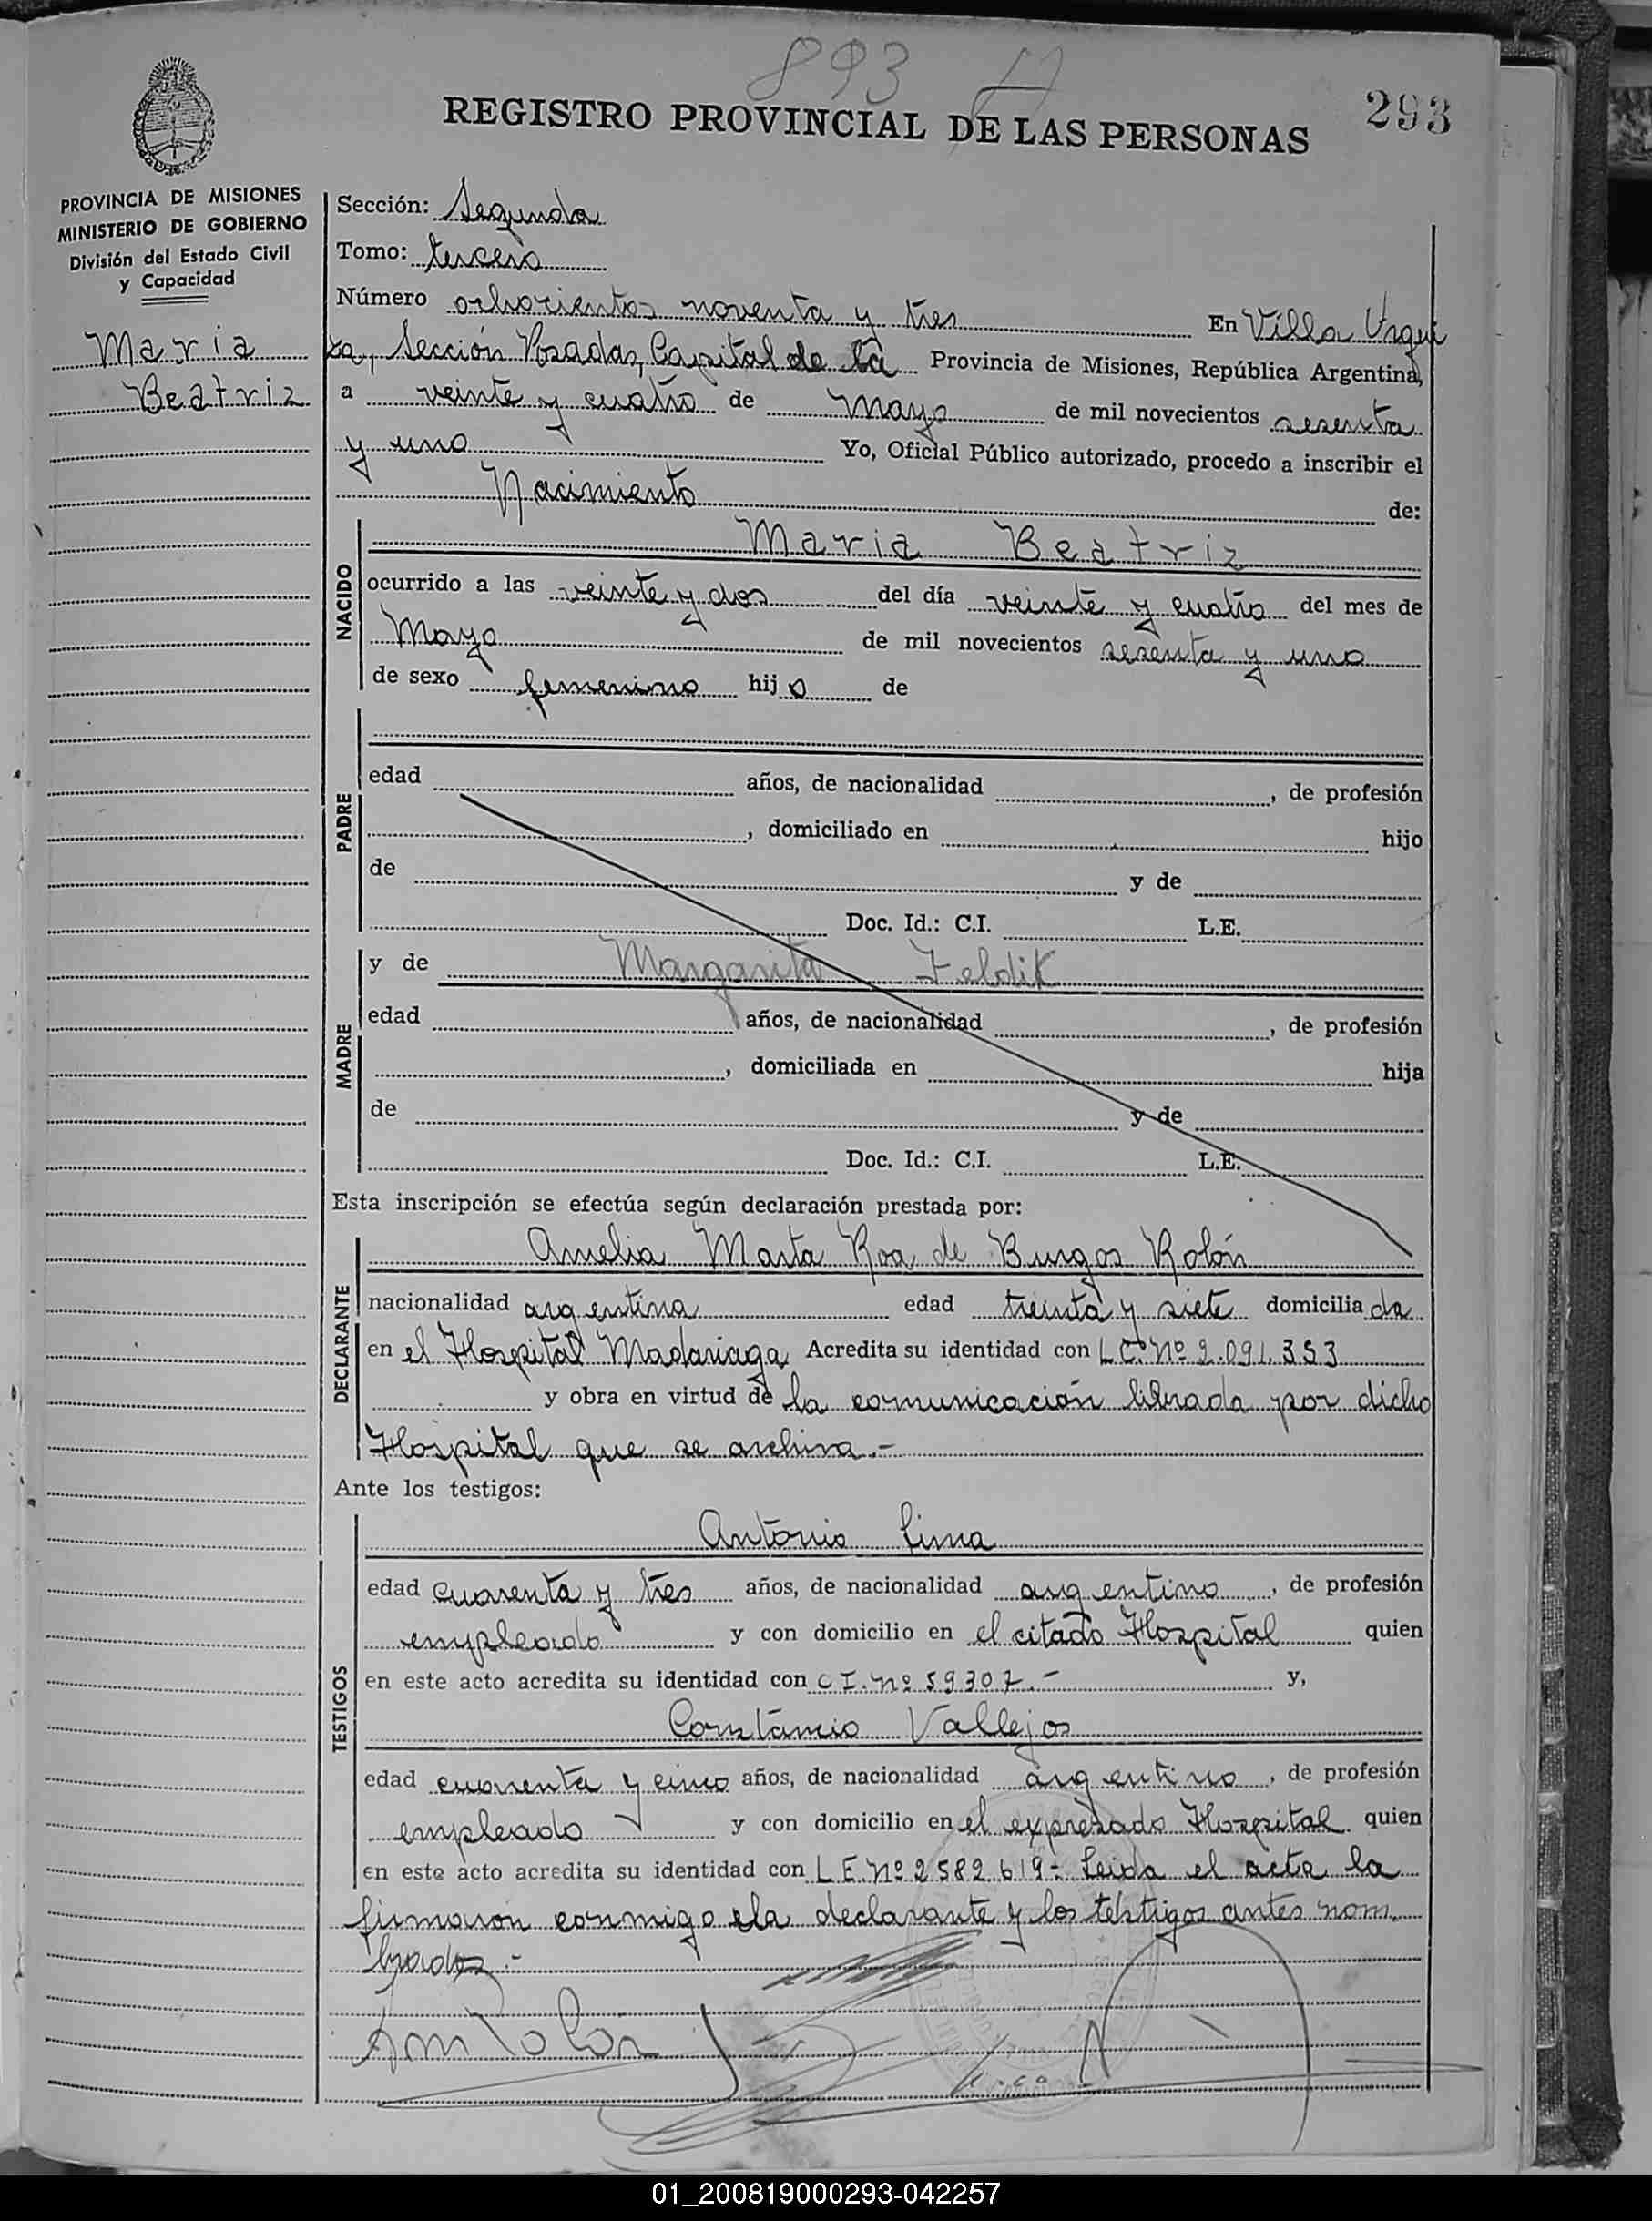 893
REGISTRO PROVINCIAL DE LAS PERSONAS
293
PROVINCIA DE MISIONES
MINISTERIO DE GOBIERNO
División del Estado Civil
y Capacidad
Maria
Beatriz
Sección: Segunda
Tomo: tercero
Número ochocientos noventa y tres En Villa Urqui
za, Sección Posadas, Capital de la Provincia de Misiones, República Argentina,
a veinte y cuatro de Mayo de mil novecientos sesenta
y uno Yo, Oficial Público autorizado, procedo a inscribir el
Nacimiento de:
NACIDO
Maria Beatriz
ocurrido a las veinte y dos del día veinte y cuatro del mes de
Mayo de mil novecientos sesenta y uno
de sexo femenino hijo de
PADRE
edad años, de nacionalidad , de profesión
, domiciliado en hijo
de y de
Doc. Id.: C.I. L.E.
MADRE
y de Margarita Zeldik
edad años, de nacionalidad , de profesión
, domiciliada en hija
de y de
Doc. Id.: C.I. L.E.
Esta inscripción se efectúa según declaración prestada por:
DECLARANTE
Amelia Marta Roa de Burgos Rolón
nacionalidad argentina edad treinta y siete domiciliada
en el Hospital Madariaga Acredita su identidad con L.C. Nº 2.091.353
y obra en virtud de la comunicación librada por dicho
Hospital que se archiva.-
Ante los testigos:
TESTIGOS
Antonio Lima
edad cuarenta y tres años, de nacionalidad argentino, de profesión
empleado y con domicilio en el citado Hospital quien
en este acto acredita su identidad con C I. Nº 59307.- y,
Constancio Vallejos
edad cuarenta y cinco años, de nacionalidad argentino, de profesión
empleado y con domicilio en el expresado Hospital quien
en este acto acredita su identidad con L E. Nº 2582619- Leida el acta la
firmaron conmigo la declarante y los testigos antes nom
brados.-
AmRolón
01_200819000293-042257